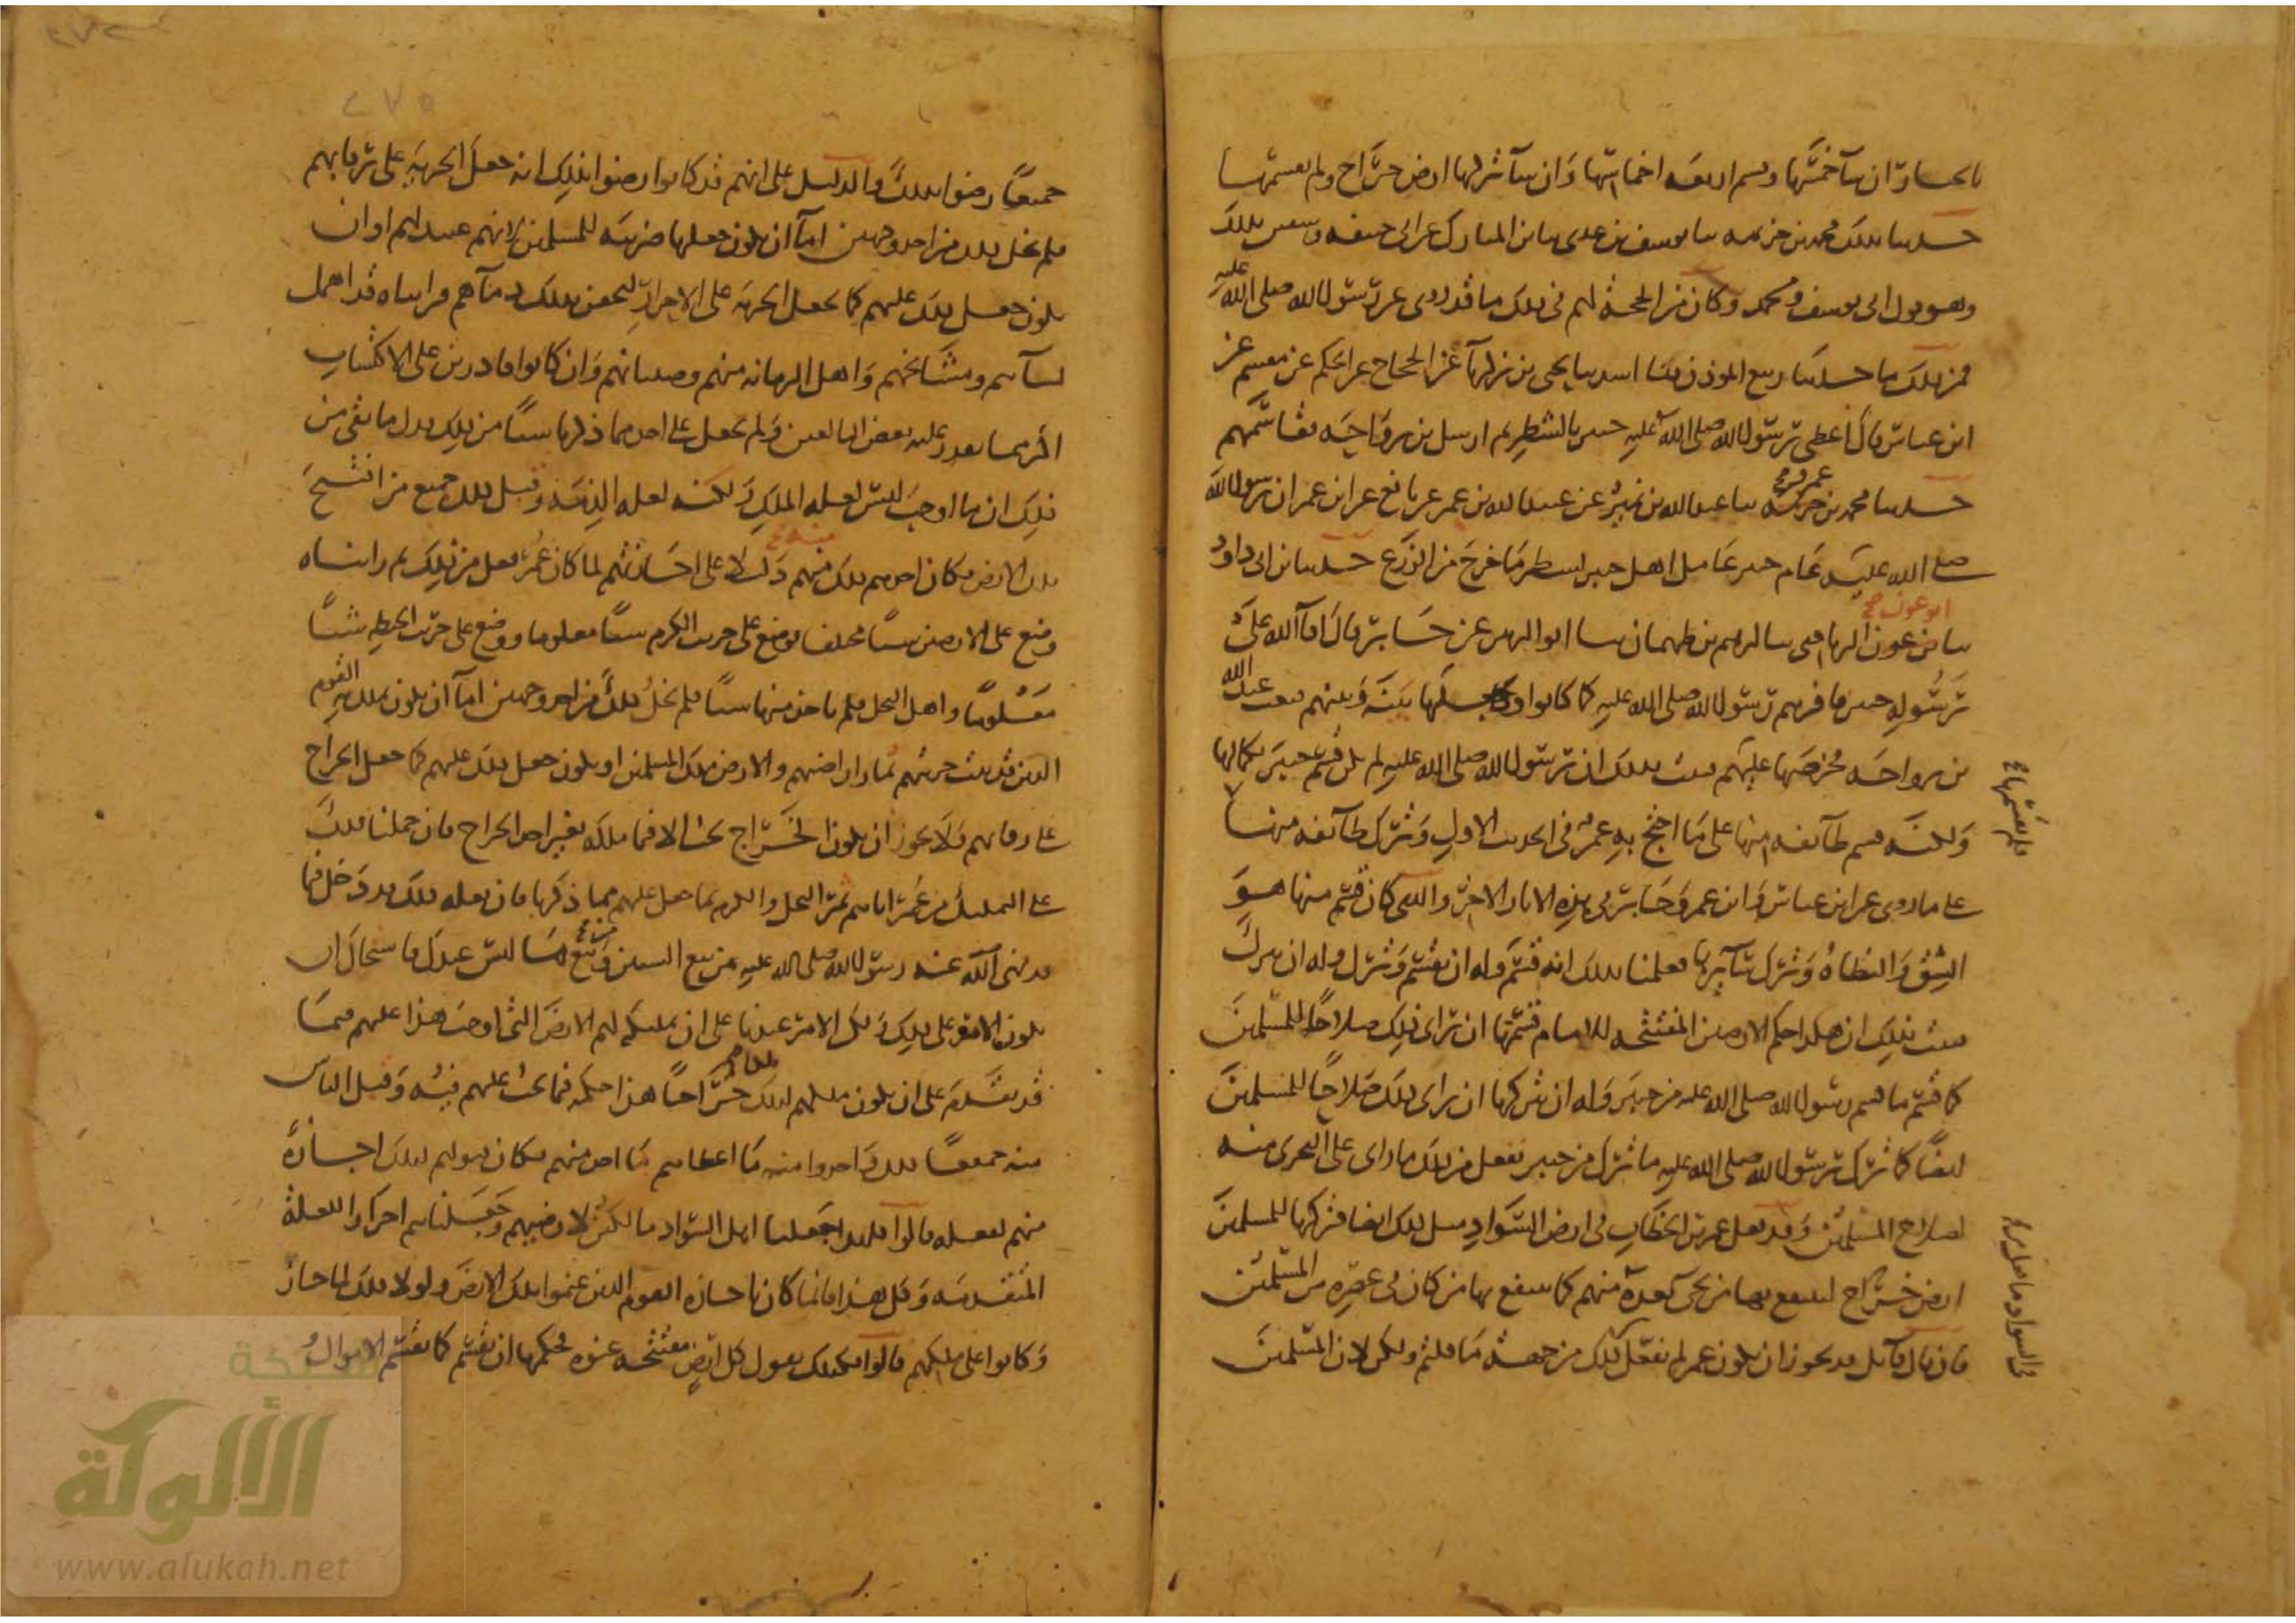 بالخيار ان شآ خمسها وقسم اربعه اخماسها وان شآ تركها ارض خراج ولم يقسمها
حدثنا بذلك محمد بن خزيمه ثنا يوسف بن عدى ثنا ابن المبارك عن ابى حنيفه وسفين بذلك
وهو قول ابى يوسف ومحمد وكان من الحجة لهم فى ذلك ما قد روى عن رسول الله صلى الله عليه
فمن ذلك ما حدثنا ربيع الموذن ثنا اسد ثنا يحيى بن زكريآ عن الحجاج عن الحكم عن مقسم عن
ابن عباس قال اعطى رسول الله صلى الله عليه خيبر بالشطر ثم ارسل بن رواحه فقاسمهم
حدثنا محمد بن عمرو ثنا عبد الله بن نمير عن عبيد الله بن عمر عن نافع عن ابن عمر ان رسول الله
صلى الله عليه عام خيبر عامل اهل خيبر بشطر ما خرج من الزرع حدثنا بن ابى داود
ثنا ابو عون الزيادى ثنا ابرهيم بن طهمان ثنا ابو الزبير عن جابر قال افآ الله على
رسوله خيبر فاقرهم رسول الله صلى الله عليه كما كانوا وجعلها بينه وبينهم فبعث عبد الله
بن رواحه فخرصها عليهم فثبت بذلك ان رسول الله صلى الله عليه لم يكن قسم خيبر بكمالها
ولكنه قسم طآئفه منها على ما احتج به عمر فى الحديث الاول وترك طآئفه منها
فلم يقسمها
على ما روى عن ابن عباس وابن عمر وجابر فى هذه الاثار الاخر والذى كان قسم منها هو
الشق والنطاة وترك سآئرها فعلمنا بذلك انه قسم وله ان يقسم وترك وله ان يترك
فثبت بذلك ان هكذا حكم الارضين المفتتحه للامام قسمتها ان راى ذلك صلاحا للمسلمين
كما قسم ما قسم رسول الله صلى الله عليه من خيبر وله ان تركها ان راى ذلك صلاحا للمسلمين
ايضا كما ترك رسول الله صلى الله عليه ما ترك من خيبر يفعل من ذلك ما راى على التحرى منه
لصلاح المسلمين وقد فعل عمر بن الخطاب فى ارض السواد مثل ذلك ايضا فتركها للمسلمين
ارض خراج لينتفع بها من يجى بعده منهم كما ينتفع بها من كان فى عصره من المسلمين
فان قال قآئل فقد يجوز ان يكون عمر لم يفعل ذلك من جهة ما قلتم ولكن لان المسلمين
جميعا رضوا بذلك والدليل على انهم قد كانوا رضوا بذلك انه جعل الجزيه على رقابهم
فلم يخل ذلك من احد وجهين امآ ان يكون جعلها ضريبه للمسلمين لانهم عبيد لهم او ان
يكون جعل ذلك عليهم كما يجعل الجزيه على الاحرار ليحقن بذلك دمآهم فرايناه قد اهمل
نسآهم ومشائخهم واهل الزمانه منهم وصبيانهم وان كانوا قادرين على الاكتساب
اكثر مما يقدر عليه بعض البالغين ولم يجعل على احد مما ذكرنا شيا من ذلك فدل ما بقى من
ذلك ان ما اوجب ليس لعله الملك ولكنه لعله الذمه وقبل ذلك جميع من افتتح
تلك الارض فكان اخذهم ذلك منهم دليلا على اجازتهم لما كان عمر فعل من ذلك ثم رايناه
وضع على الارضين شيا مختلفا فوضع على جريب الكرم شيا معلوما ووضع على جريب الحنطه شيا
معلوما واهمل النخل فلم ياخذ منها شيا فلم يخل ذلك من احد وجهين امآ ان يكون ملك القوم
الذين قد ثبت حرمتهم ثمار اراضيهم والارض ملك للمسلمين او يكون جعل ذلك عليهم كما جعل الخراج
على رقابهم ولا يجوز ان يكون الخراج يجب الا فيما ملكه لغير اخذ الخراج فان حملنا ذلك
على التمليك من عمر اياهم ثمر النخل والكرم بما جعل عليهم مما ذكرنا فان فعله ذلك قد دخل فيما
قد نهى الله عنه رسول الله صلى الله عليه من بيع السنين وبيع ما ليس عندك فاستحال ان
يكون الامر على ذلك ولكن الامر عندنا على ان تمليكه لهم الارض التى اوجب هذا عليهم فيما
قد تقدم على ان يكون ملكهم لذلك خراجا هذا حكمه فيما يجب عليهم فيه وقبل الناس
منه جميعا ذلك واخذوا منه ما اعطاهم مما اخذ منهم فكان قبولهم لذلك اجازة
منهم لفعله قالوا فلهذا جعلنا اهل السواد مالكين لارضيهم وجعلناهم احرارا للعلة
المتقدمه وكل هذا فانما كان باجازه القوم الذين غنموا تلك الارض ولولا ذلك لما جاز
وكانوا على ملكهم قالوا فكذلك نقول كل ارض مفتتحه عنوه فحكمها ان تقسم كما تقسم الاموال
شبكة
الألوكة
www.alukah.net